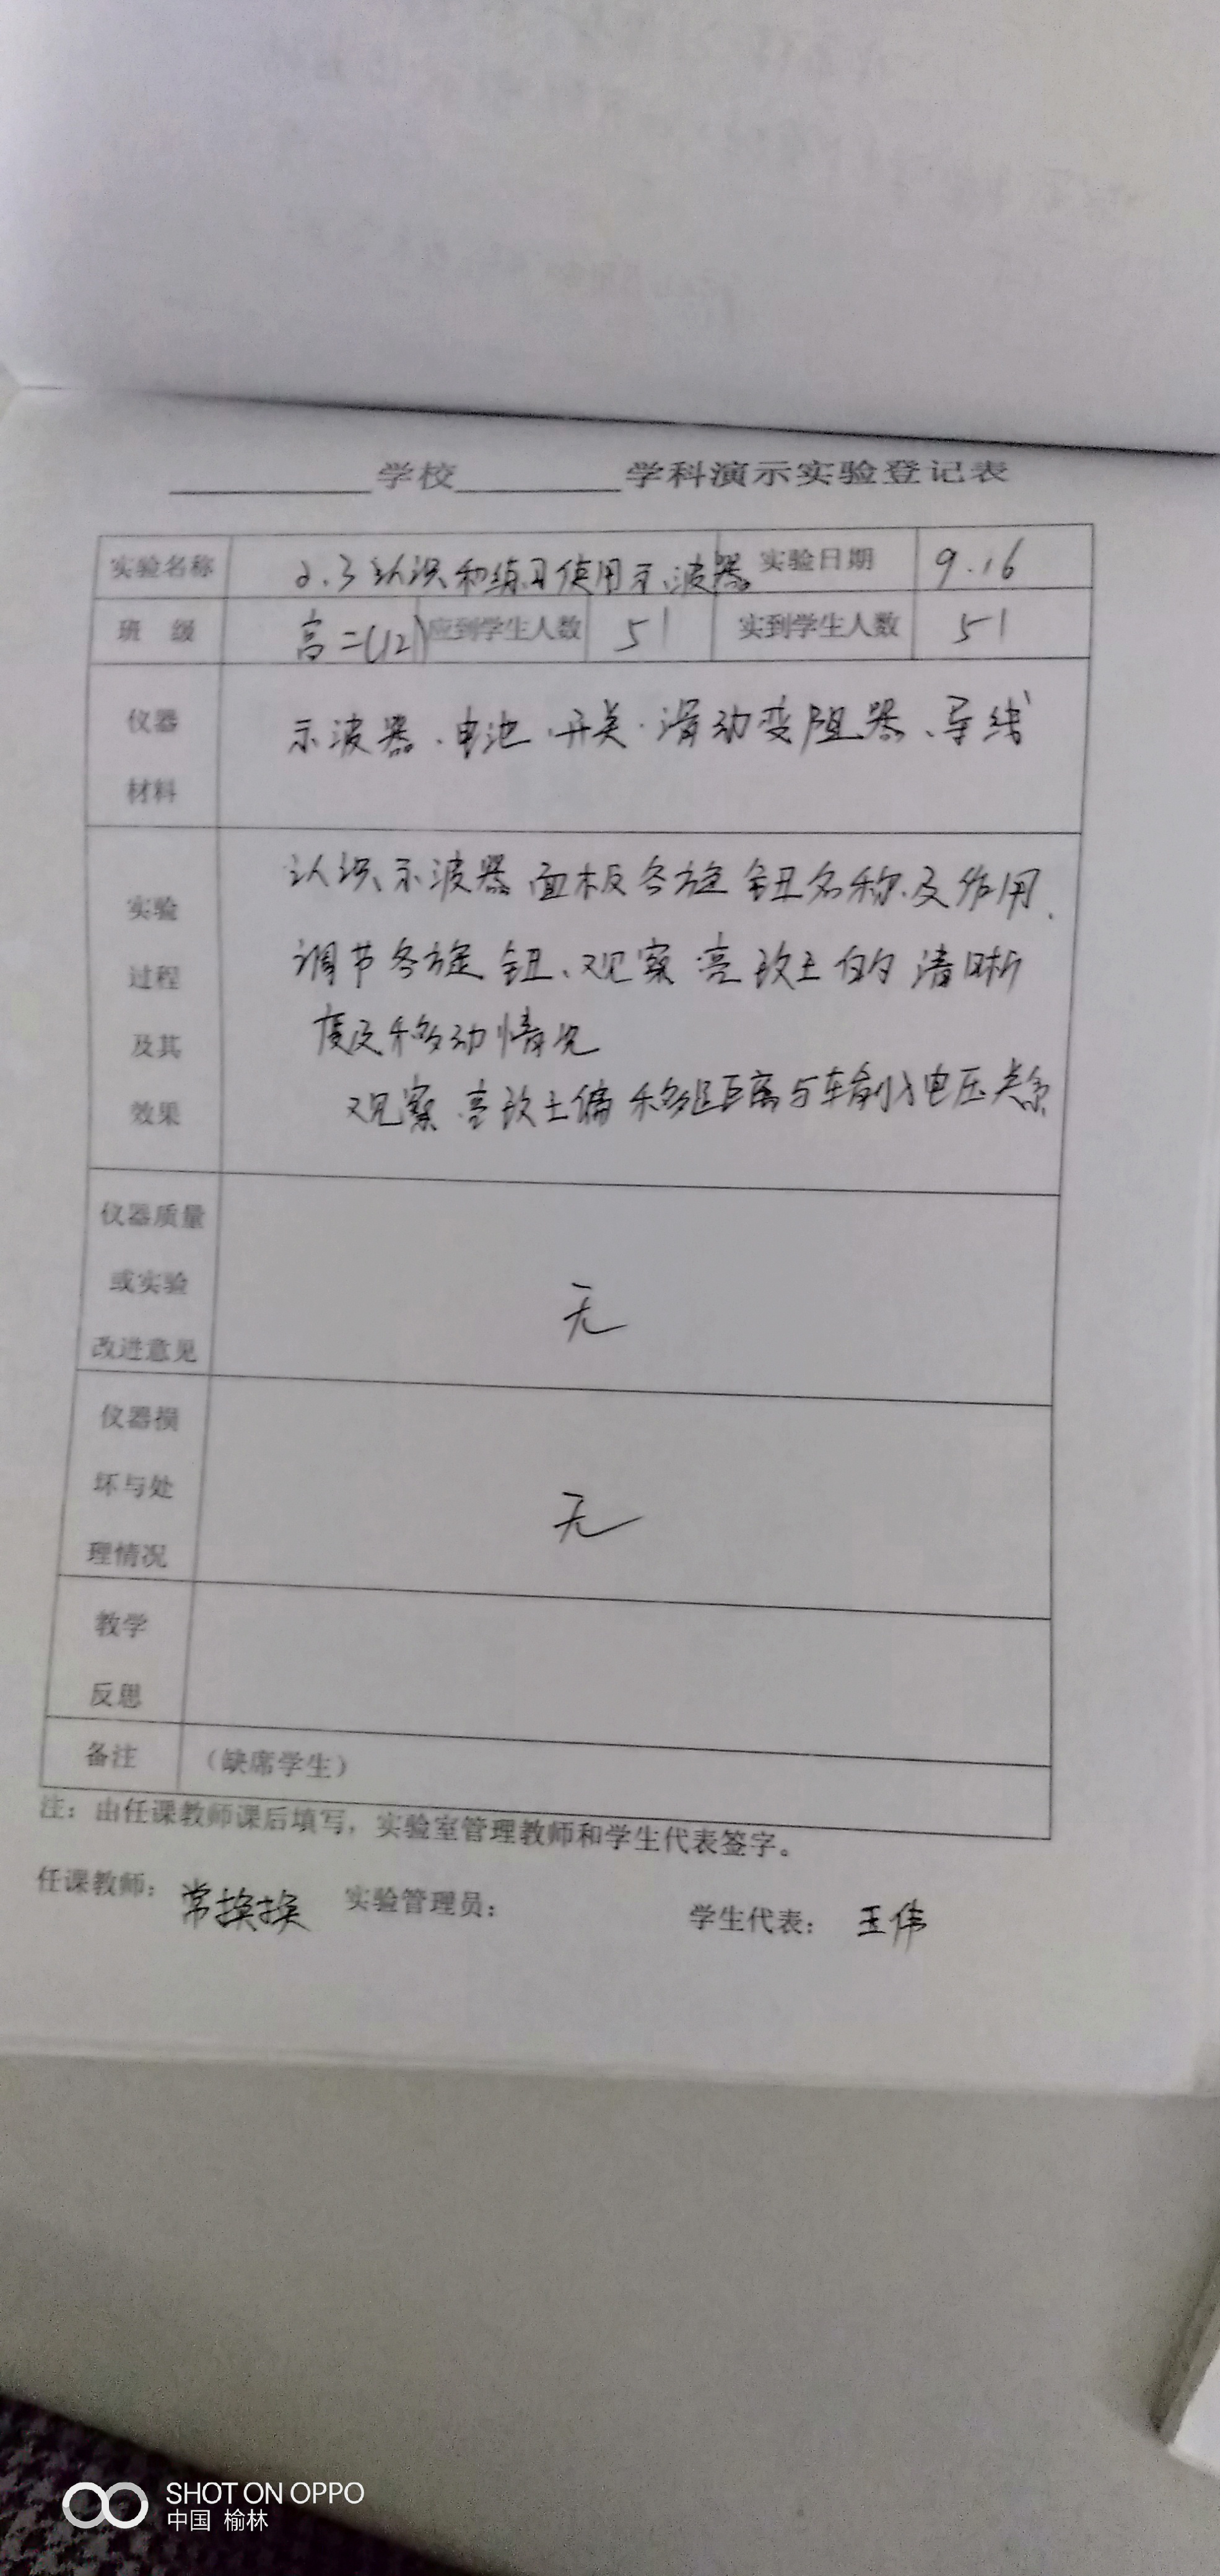 学校 学科演示实验登记表
实验名称 2.3认识和练习使用示波器 实验日期 9.16
班 级 高二(12) 应到学生人数 51 实到学生人数 51
仪器
材料
示波器、电池、开关、滑动变阻器、导线
实验
过程
及其
效果
认识示波器面板各旋钮名称及作用.
调节各旋钮、观察亮斑的清晰
度及移动情况
观察亮斑偏移距离与输入电压关系
仪器质量
或实验
改进意见
无
仪器损
坏与处
理情况
无
教学
反思
备注 （缺席学生）
注：由任课教师课后填写，实验室管理教师和学生代表签字。
任课教师：常换换 实验管理员： 学生代表：王伟
SHOT ON OPPO
中国 榆林